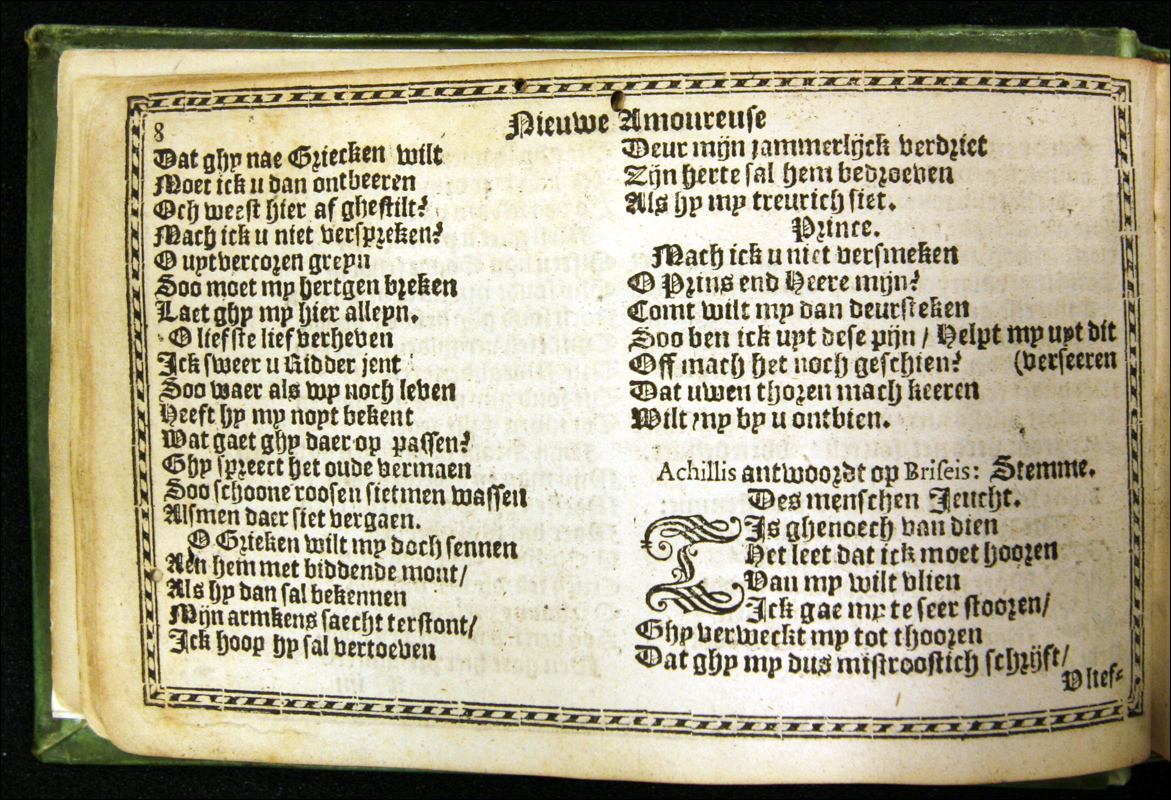 8
Nieuwe Amoureuse
Dat ghy nae Griecken wilt
Moet ick u dan ontbeeren
Och weest hier af ghestilt?
Mach ick u niet verspreken?
O uytvercoren greyn
Soo moet my hertgen breken
Laet ghy my hier alleyn.
O liefste lief verheven
Ick sweer u Ridder jent
Soo waer als wy noch leven
Heeft hy my noyt bekent
Wat gaet ghy daer op passen?
Ghy spreect het oude vermaen
Soo schoone roosen sietmen wassen
Alsmen daer siet vergaen.
O Grieken wilt my doch sennen
Aen hem met biddende mont/
Als hy dan sal bekennen
Mijn armkens saecht terstont/
Ick hoop hy sal vertoeven
Deur mijn jammerlijck verdriet
Zijn herte sal hem bedroeven
Als hy my treurich siet.
Prince.
Mach ick u niet versmeken
O Prins end Heere mijn?
Comt wilt my dan deursteken
Soo ben ick uyt dese pijn / Helpt my uyt dit
Off mach het noch geschien? (verseeren
Dat uwen thoren mach keeren
Wilt my by u ontbien.
Achillis antwoordt op Briseis: Stemme.
Des menschen Jeucht.
Is ghenoech van dien
Het leet dat ick moet hooren
Van my wilt vlien
Ick gae my te seer stooren/
Ghy verweckt my tot thooren
Dat ghy my dus mistroostich schrijft/
V lief-